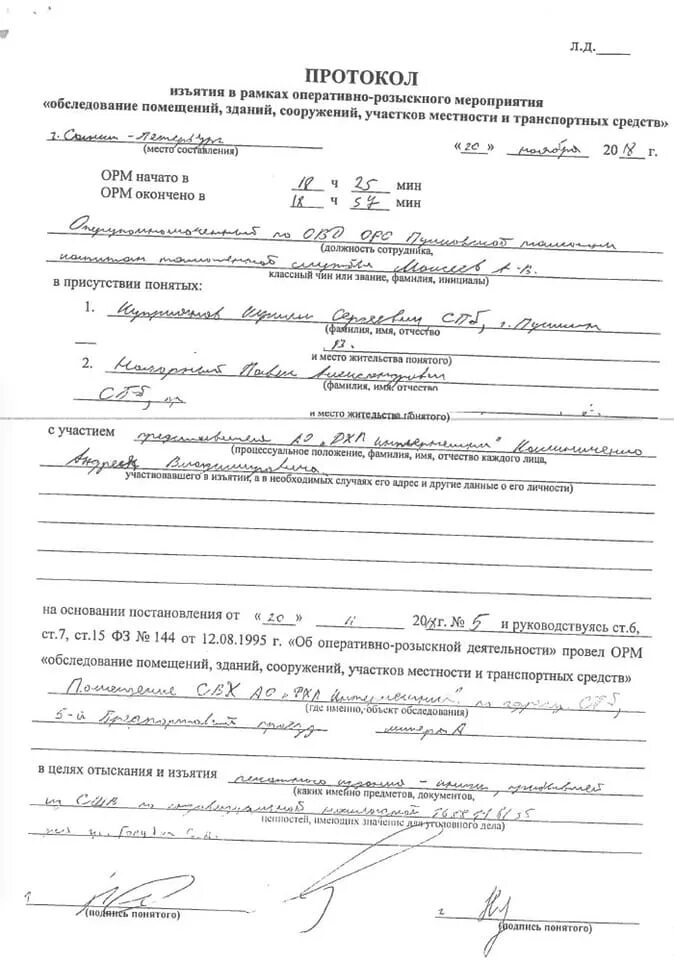 Л.Д.
ПРОТОКОЛ
изъятия в рамках оперативно-розыскного мероприятия
«обследование помещений, зданий, сооружений, участков местности и транспортных средств»
г. Санкт-Петербург «20» ноября 2018 г.
(место составления)
ОРМ начато в 18 ч 25 мин
ОРМ окончено в 18 ч 57 мин
Оперуполномоченный по ОВД ОРО Пулковской таможни
(должность сотрудника,
капитан таможенной службы Моисеев А.В.
классный чин или звание, фамилия, инициалы)
в присутствии понятых:
1. Куприянов Кирилл Сергеевич СПб, г. Пушкин
(фамилия, имя, отчество
и место жительства понятого)
2. Павел Александрович
(фамилия, имя, отчество
СПб,
и место жительства понятого)
с участием представителя АО „ДХЛ Интернешнл"
(процессуальное положение, фамилия, имя, отчество каждого лица,
Андрея Владимировича
участвовавшего в изъятии, а в необходимых случаях его адрес и другие данные о его личности)
на основании постановления от «20» 11 2018г. № 5 и руководствуясь ст.6,
ст.7, ст.15 ФЗ № 144 от 12.08.1995 г. «Об оперативно-розыскной деятельности» провел ОРМ
«обследование помещений, зданий, сооружений, участков местности и транспортных средств»
Помещение СВХ АО „ДХЛ Интернешнл" по адресу СПб,
(где именно, объект обследования)
5-й Предпортовый проезд литера А
в целях отыскания и изъятия печатного издания - книги, прибывшей
(каких именно предметов, документов,
из США по накладной
ценностей, имеющих значение для уголовного дела)
(подпись понятого)
(подпись понятого)